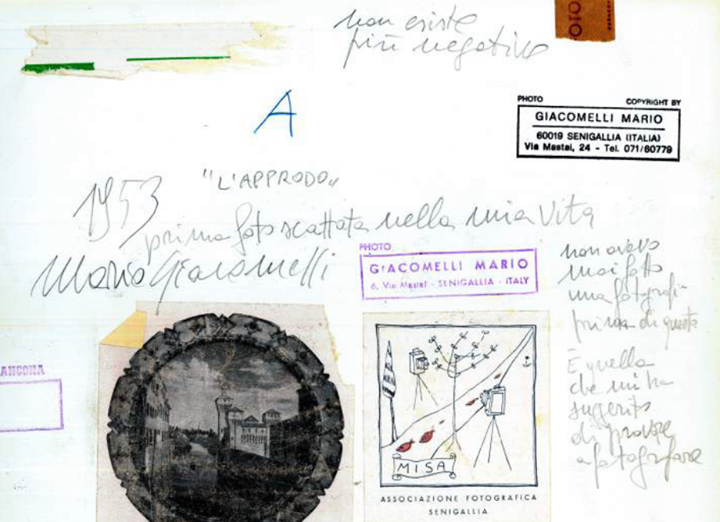 non esiste
più negativo
OTO
A
PHOTO COPYRIGHT BY
GIACOMELLI MARIO
60019 SENIGALLIA (ITALIA)
Via Mastai, 24 - Tel. 071/60779
1953 "L'APPRODO"
prima foto scattata nella mia vita
Mario Giacomelli
PHOTO
GIACOMELLI MARIO
6, Via Mastai - SENIGALLIA - ITALY
non avevo
mai fatto
una fotografia
prima di questa
È quella
che mi ha
suggerito
di provare
a fotografare
ANCONA
MISA
ASSOCIAZIONE FOTOGRAFICA
SENIGALLIA